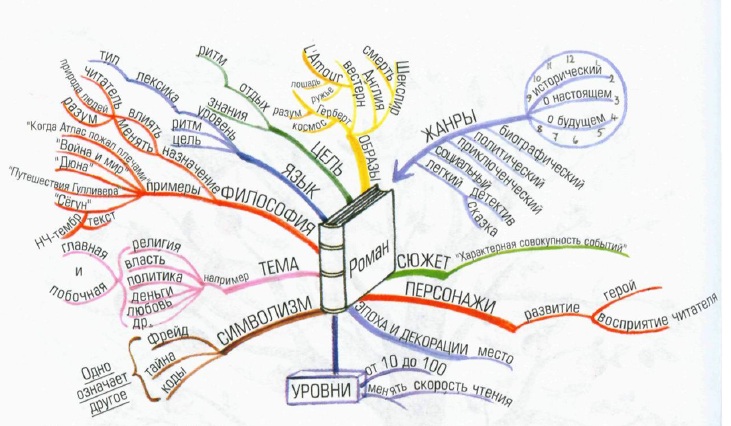 Роман
ЦЕЛЬ
ритм
отдых
знания
ОБРАЗЫ
L'Amour
лошадь
ружье
вестерн
смерть
Англия
Шекспир
разум
Герберт
космос
ЖАНРЫ
12
11
10
9
8
7
6
5
4
3
2
исторический
о настоящем
о будущем
биографический
политический
приключенческий
социальный
легкий
детектив
сказка
СЮЖЕТ
"Характерная совокупность событий"
ПЕРСОНАЖИ
развитие
герой
восприятие читателя
ЭПОХА И ДЕКОРАЦИИ
место
УРОВНИ
от 10 до 100
менять скорость чтения
СИМВОЛИЗМ
фрейд
тайна
коды
Одно
означает
другое
ТЕМА
например
религия
власть
политика
деньги
любовь
др.
главная
и
побочная
ФИЛОСОФИЯ
назначение
влиять
менять
читатель
природа людей
разум
примеры
"Когда Атлас пожал плечами"
"Война и мир"
"Дюна"
"Путешествия Гулливера"
"Сёгун"
НЧ-тембр
текст
ЯЗЫК
лексика
тип
уровень
ритм
цель